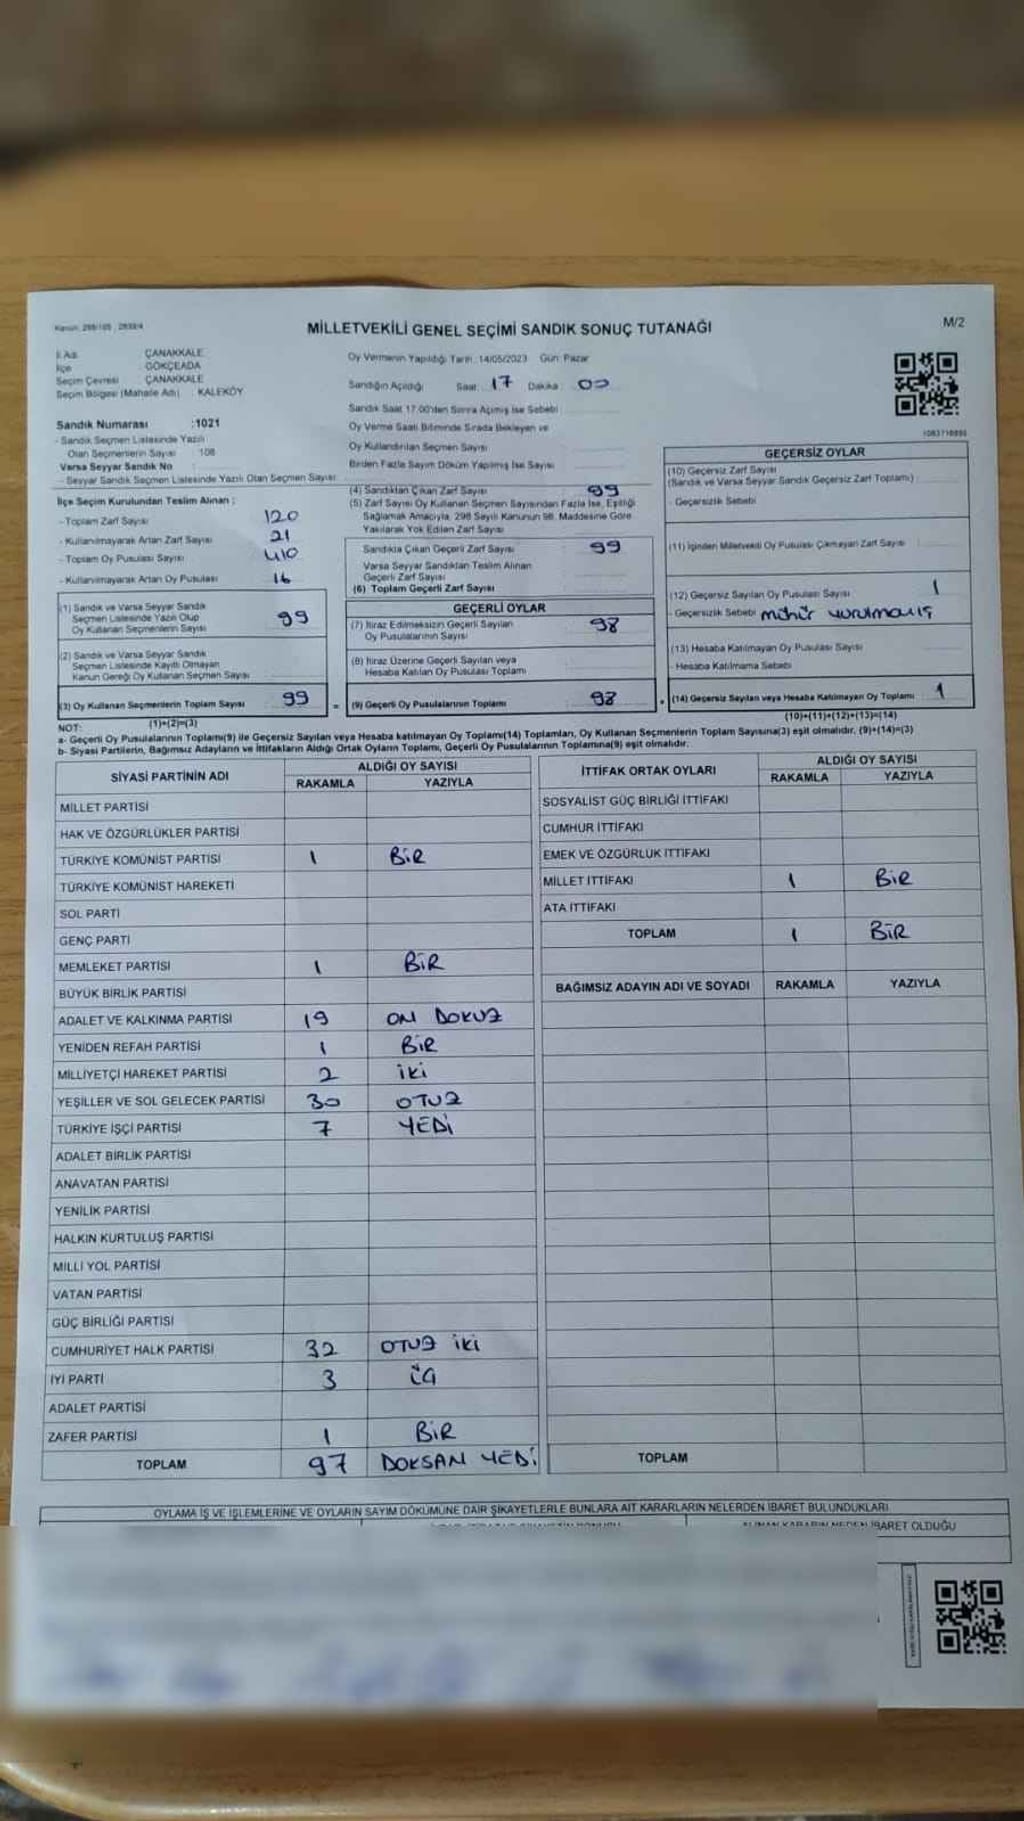 Kanun: 298/105 , 2839/4
MİLLETVEKİLİ GENEL SEÇİMİ SANDIK SONUÇ TUTANAĞI
M/2
İl Adı : ÇANAKKALE
İlçe : GÖKÇEADA
Seçim Çevresi : ÇANAKKALE
Seçim Bölgesi (Mahalle Adı) : KALEKÖY
Sandık Numarası :1021
- Sandık Seçmen Listesinde Yazılı
Olan Seçmenlerin Sayısı 108
Varsa Seyyar Sandık No
- Seyyar Sandık Seçmen Listesinde Yazılı Olan Seçmen Sayısı
İlçe Seçim Kurulundan Teslim Alınan ;
- Toplam Zarf Sayısı 120
- Kullanılmayarak Artan Zarf Sayısı 21
- Toplam Oy Pusulası Sayısı 410
- Kullanılmayarak Artan Oy Pusulası 16
(1) Sandık ve Varsa Seyyar Sandık
Seçmen Listesinde Yazılı Olup
Oy Kullanan Seçmenlerin Sayısı 99
(2) Sandık ve Varsa Seyyar Sandık
Seçmen Listesinde Kayıtlı Olmayan
Kanun Gereği Oy Kullanan Seçmen Sayısı
(3) Oy Kullanan Seçmenlerin Toplam Sayısı 99
(1)+(2)=(3)
Oy Vermenin Yapıldığı Tarih :14/05/2023 Gün: Pazar
Sandığın Açıldığı Saat: 17 Dakika: 00
Sandık Saat 17.00'den Sonra Açılmış İse Sebebi :
Oy Verme Saati Bitiminde Sırada Bekleyen ve
Oy Kullandırılan Seçmen Sayısı
Birden Fazla Sayım Döküm Yapılmış İse Sayısı
(4) Sandıktan Çıkan Zarf Sayısı 99
(5) Zarf Sayısı Oy Kullanan Seçmen Sayısından Fazla İse, Eşitliği
Sağlamak Amacıyla, 298 Sayılı Kanunun 98. Maddesine Göre
Yakılarak Yok Edilen Zarf Sayısı
Sandıkta Çıkan Geçerli Zarf Sayısı 99
Varsa Seyyar Sandıktan Teslim Alınan
Geçerli Zarf Sayısı
(6) Toplam Geçerli Zarf Sayısı
GEÇERLİ OYLAR
(7) İtiraz Edilmeksizin Geçerli Sayılan
Oy Pusulalarının Sayısı 98
(8) İtiraz Üzerine Geçerli Sayılan veya
Hesaba Katılan Oy Pusulası Toplamı
= (9) Geçerli Oy Pusulalarının Toplamı 98 +
1083718995
GEÇERSİZ OYLAR
(10) Geçersiz Zarf Sayısı
(Sandık ve Varsa Seyyar Sandık Geçersiz Zarf Toplamı)
- Geçersizlik Sebebi
(11) İçinden Milletvekili Oy Pusulası Çıkmayan Zarf Sayısı
(12) Geçersiz Sayılan Oy Pusulası Sayısı 1
- Geçersizlik Sebebi mühür vurulmamış
(13) Hesaba Katılmayan Oy Pusulası Sayısı
- Hesaba Katılmama Sebebi
(14) Geçersiz Sayılan veya Hesaba Katılmayan Oy Toplamı 1
(10)+(11)+(12)+(13)=(14)
NOT:
a- Geçerli Oy Pusulalarının Toplamı(9) ile Geçersiz Sayılan veya Hesaba katılmayan Oy Toplamı(14) Toplamları, Oy Kullanan Seçmenlerin Toplam Sayısına(3) eşit olmalıdır. (9)+(14)=(3)
b- Siyasi Partilerin, Bağımsız Adayların ve İttifakların Aldığı Ortak Oyların Toplamı, Geçerli Oy Pusulalarının Toplamına(9) eşit olmalıdır.
SİYASİ PARTİNİN ADI ALDIĞI OY SAYISI
RAKAMLA YAZIYLA
MİLLET PARTİSİ
HAK VE ÖZGÜRLÜKLER PARTİSİ
TÜRKİYE KOMÜNİST PARTİSİ 1 BİR
TÜRKİYE KOMÜNİST HAREKETİ
SOL PARTİ
GENÇ PARTİ
MEMLEKET PARTİSİ 1 BİR
BÜYÜK BİRLİK PARTİSİ
ADALET VE KALKINMA PARTİSİ 19 ON DOKUZ
YENİDEN REFAH PARTİSİ 1 BİR
MİLLİYETÇİ HAREKET PARTİSİ 2 İKİ
YEŞİLLER VE SOL GELECEK PARTİSİ 30 OTUZ
TÜRKİYE İŞÇİ PARTİSİ 7 YEDİ
ADALET BİRLİK PARTİSİ
ANAVATAN PARTİSİ
YENİLİK PARTİSİ
HALKIN KURTULUŞ PARTİSİ
MİLLİ YOL PARTİSİ
VATAN PARTİSİ
GÜÇ BİRLİĞİ PARTİSİ
CUMHURİYET HALK PARTİSİ 32 OTUZ İKİ
İYİ PARTİ 3 ÜÇ
ADALET PARTİSİ
ZAFER PARTİSİ 1 BİR
TOPLAM 97 DOKSAN YEDİ
İTTİFAK ORTAK OYLARI ALDIĞI OY SAYISI
RAKAMLA YAZIYLA
SOSYALİST GÜÇ BİRLİĞİ İTTİFAKI
CUMHUR İTTİFAKI
EMEK VE ÖZGÜRLÜK İTTİFAKI
MİLLET İTTİFAKI 1 BİR
ATA İTTİFAKI
TOPLAM 1 BİR
BAĞIMSIZ ADAYIN ADI VE SOYADI RAKAMLA YAZIYLA
TOPLAM
OYLAMA İŞ VE İŞLEMLERİNE VE OYLARIN SAYIM DÖKÜMÜNE DAİR ŞİKAYETLERLE BUNLARA AİT KARARLARIN NELERDEN İBARET BULUNDUKLARI
ALINAN KARARIN NEDEN İBARET OLDUĞU